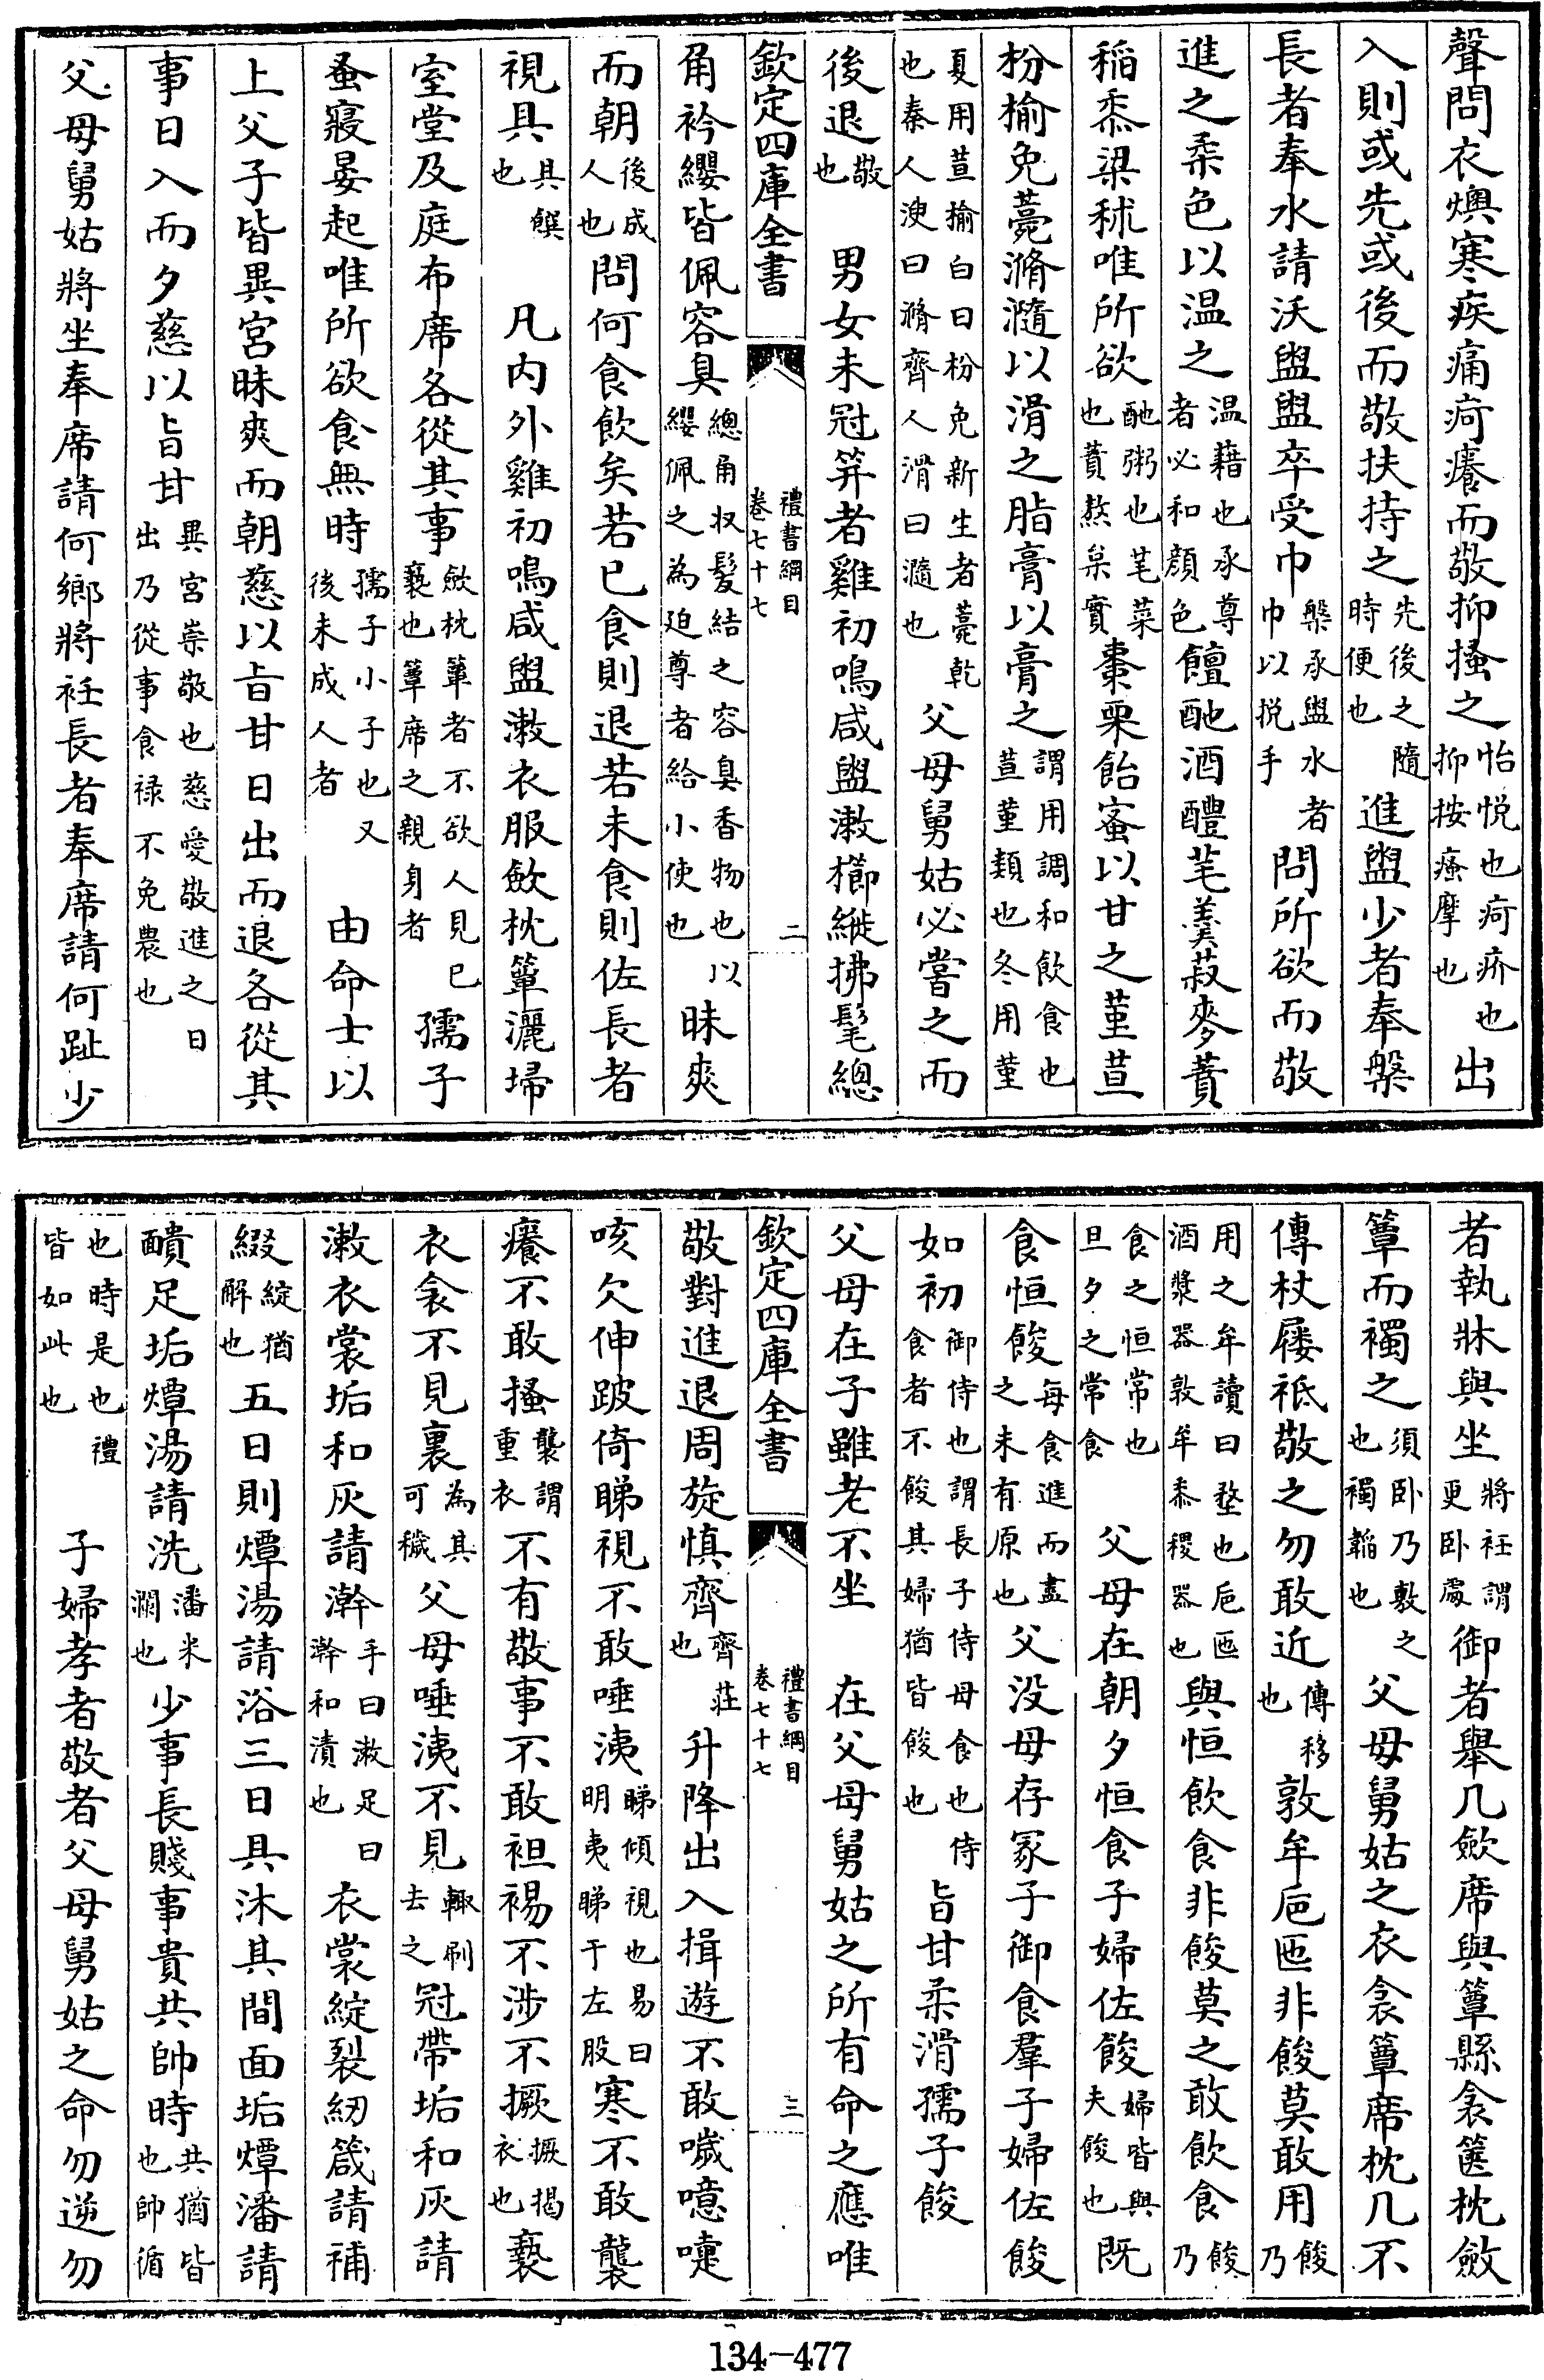 聲問衣燠寒疾痛疴癢而敬抑搔之怡悦也疴疥也抑按癢摩也出
入則或先或後而敬扶持之先後之隨時便也進盥少者奉槃
長者奉水請沃盥盥卒受巾槃承盥水者巾以挩手問所欲而敬
進之柔色以温之温藉也承尊者必和顔色饘酏酒醴芼羮菽麥蕡
稻黍梁秫唯所欲酏粥也芼菜也蕡熬枲實棗栗飴蜜以甘之堇荁
枌榆免薧滫瀡以滑之脂膏以膏之謂用調和飲食也荁堇類也冬用堇
夏用荁榆白曰枌免新生者薧乾也秦人溲曰滫齊人滑曰瀡也父母舅姑必嘗之而
後退敬也　男女未冠笄者雞初鳴咸盥漱櫛縰拂髦總
欽定四庫全書　禮書綱目　卷七十七　二
角衿纓皆佩容臭總角収髮結之容臭香物也以纓佩之為迫尊者給小使也昧爽
而朝後成人也問何食飲矣若已食則退若未食則佐長者
視具具饌也　凡内外雞初鳴咸盥漱衣服斂枕簟灑埽
室堂及庭布席各從其事斂枕簟者不欲人見已褻也簟席之親身者孺子
蚤寢晏起唯所欲食無時孺子小子也又後未成人者　由命士以
上父子皆異宮昧爽而朝慈以旨甘日出而退各從其
事日入而夕慈以旨甘異宮崇敬也慈愛敬進之日出乃從事食禄不免農也
父母舅姑將坐奉席請何鄉將衽長者奉席請何趾少
者執牀與坐將衽謂更卧處御者舉几斂席與簟縣衾篋枕斂
簟而襡之須卧乃敷之也襡韜也父母舅姑之衣衾簟席枕几不
傳杖屨祗敬之勿敢近傳移也敦牟巵匜非餕莫敢用餕乃
用之牟讀曰堥也巵匜酒漿器敦牟黍稷器也與恒飲食非餕莫之敢飲食餕乃
食之恒常也旦夕之常食　父母在朝夕恒食子婦佐餕婦皆與夫餕也既
食恒餕每食進而盡之未有原也父没母存冢子御食羣子婦佐餕
如初御侍也謂長子侍母食也侍食者不餕其婦猶皆餕也旨甘柔滑孺子餕
父母在子雖老不坐　在父母舅姑之所有命之應唯
欽定四庫全書　禮書綱目　卷七十七　三
敬對進退周旋慎齊齊莊也升降出入揖遊不敢噦噫嚏
咳欠伸跛倚睇視不敢唾洟睇傾視也易曰明夷睇于左股寒不敢襲
癢不敢搔襲謂重衣不有敬事不敢袒裼不涉不撅撅揭衣也褻
衣衾不見裏為其可穢父母唾洟不見輙刷去之冠帶垢和灰請
漱衣裳垢和灰請澣手曰漱足曰澣和漬也衣裳綻裂紉箴請補
綴綻猶解也五日則燂湯請浴三日具沐其間面垢燂潘請
靧足垢燂湯請洗潘米瀾也少事長賤事貴共帥時共猶皆也帥循
也時是也禮皆如此也　子婦孝者敬者父母舅姑之命勿逆勿
134-477